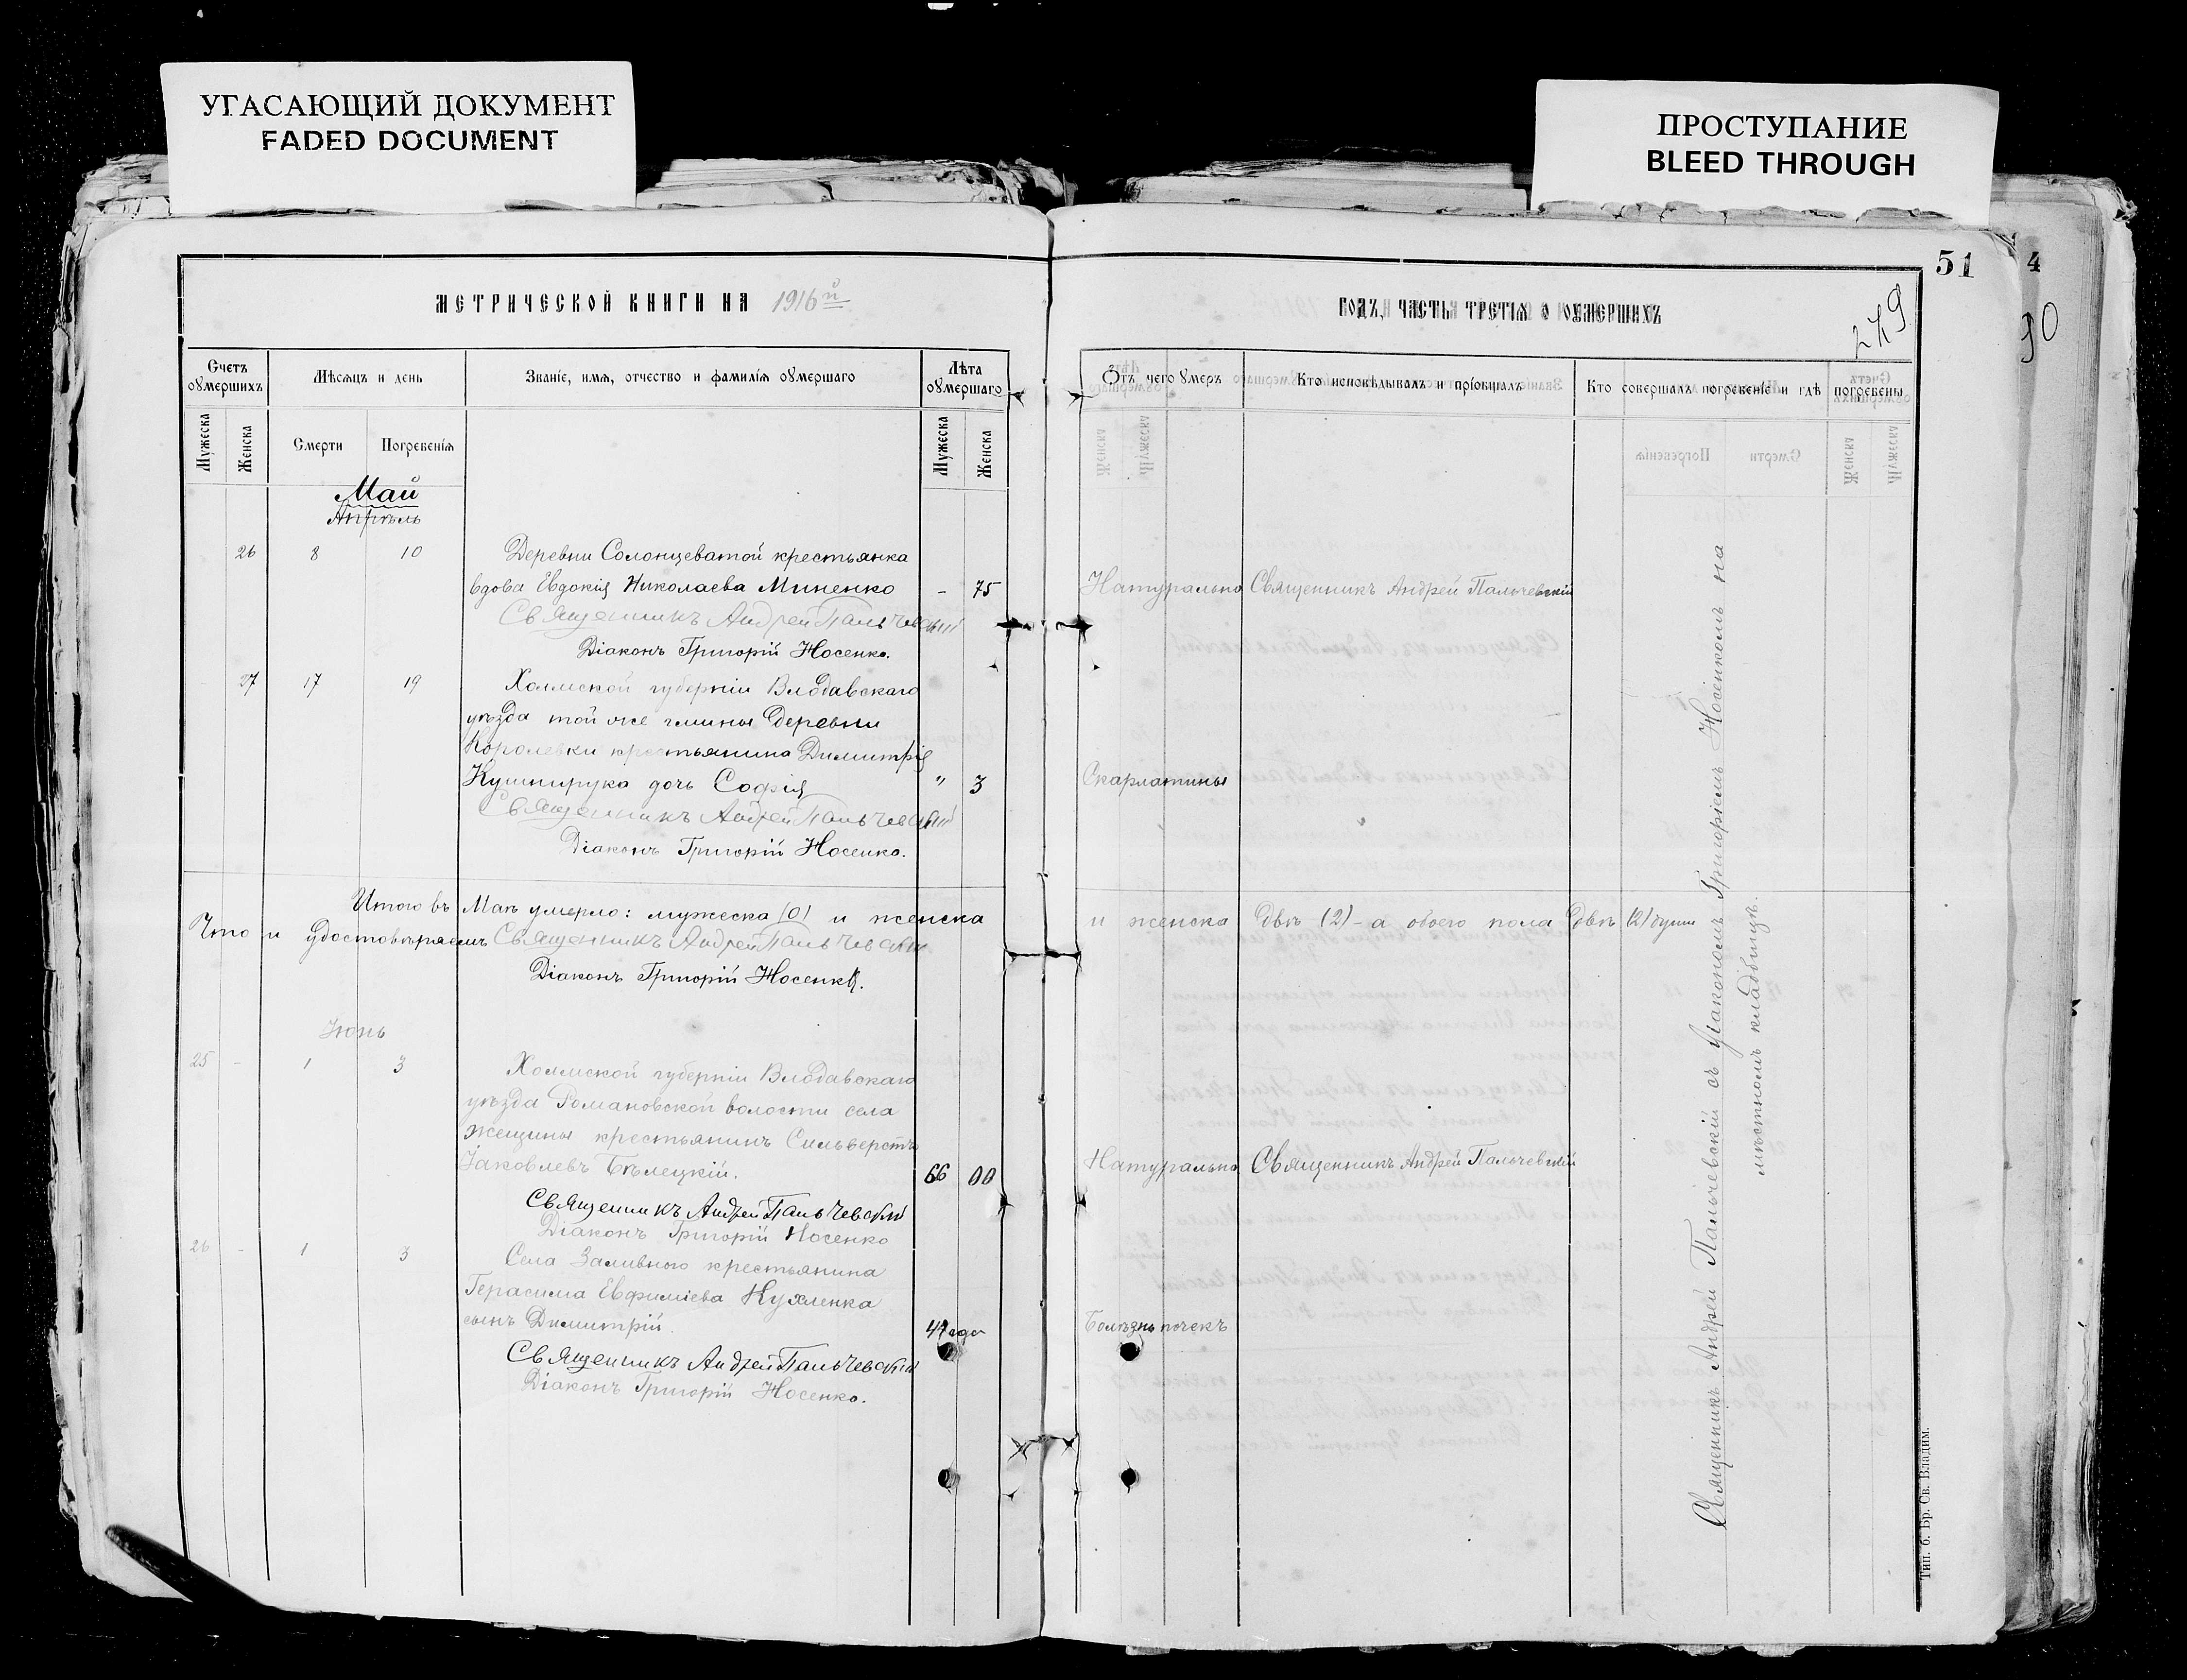 УГАСАЮЩИЙ ДОКУМЕНТ
FADED DOCUMENT
ПРОСТУПАНИЕ
BLEED THROUGH
МЕТРИЧЕСКОЙ КНИГИ НА 1916й
ГОДЪ, ЧАСТЬ ТРЕТІЯ О ОУМЕРШИХЪ
51
4
90
Счетъ оумершихъ
Мѣсяцъ и день
Званіе, имя, отчество и фамилія оумершаго
Лѣта оумершаго
Отъ чего оумеръ
Кто исповѣдывалъ и пріобщалъ
Кто совершалъ погребеніе и гдѣ погребены
Мужеска
Женска
Смерти
Погребенія
Мужеска
Женска
Май
Апрѣль
26 8 10 Деревни Солонцеватой крестьянка
вдова Евдокія Николаева Миненко - 75 Натурально Священникъ Андрей Пальчевскій
Священникъ Андрей Пальчевскій
Діаконъ Григорій Носенко.
27 17 19 Холмской губерніи Влодавскаго
уѣзда той же гмины деревни
Королевки крестьянина Димитрія
Кушнирука дочь Софія " 3 Скарлатины
Священникъ Андрей Пальчевскій
Діаконъ Григорій Носенко.
Итого въ Маѣ умерло: мужеска (0) и женска и женска двѣ (2) - а обоего пола двѣ (2) души
Что и удостовѣряемъ Священникъ Андрей Пальчевскій
Діаконъ Григорій Носенко.
Іюнь
25 - 1 3 Холмской губерніи Влодавскаго
уѣзда Романовской волости села
Жещины крестьянинъ Сильверстъ
Іаковлевъ Бѣлецкій. 66 00 Натурально Священникъ Андрей Пальчевскій
Священникъ Андрей Пальчевскій
Діаконъ Григорій Носенко
26 - 1 3 Села Заливного крестьянина
Герасима Евфиміева Кухленка
сынъ Димитрій. Болѣзнь почекъ
Священникъ Андрей Пальчевскій
Діаконъ Григорій Носенко.
Священникъ Андрей Пальчевскій съ діакономъ Григоріемъ Носенкомъ на
мѣстномъ кладбищѣ.
Тип. б. Бр. Св. Владим.